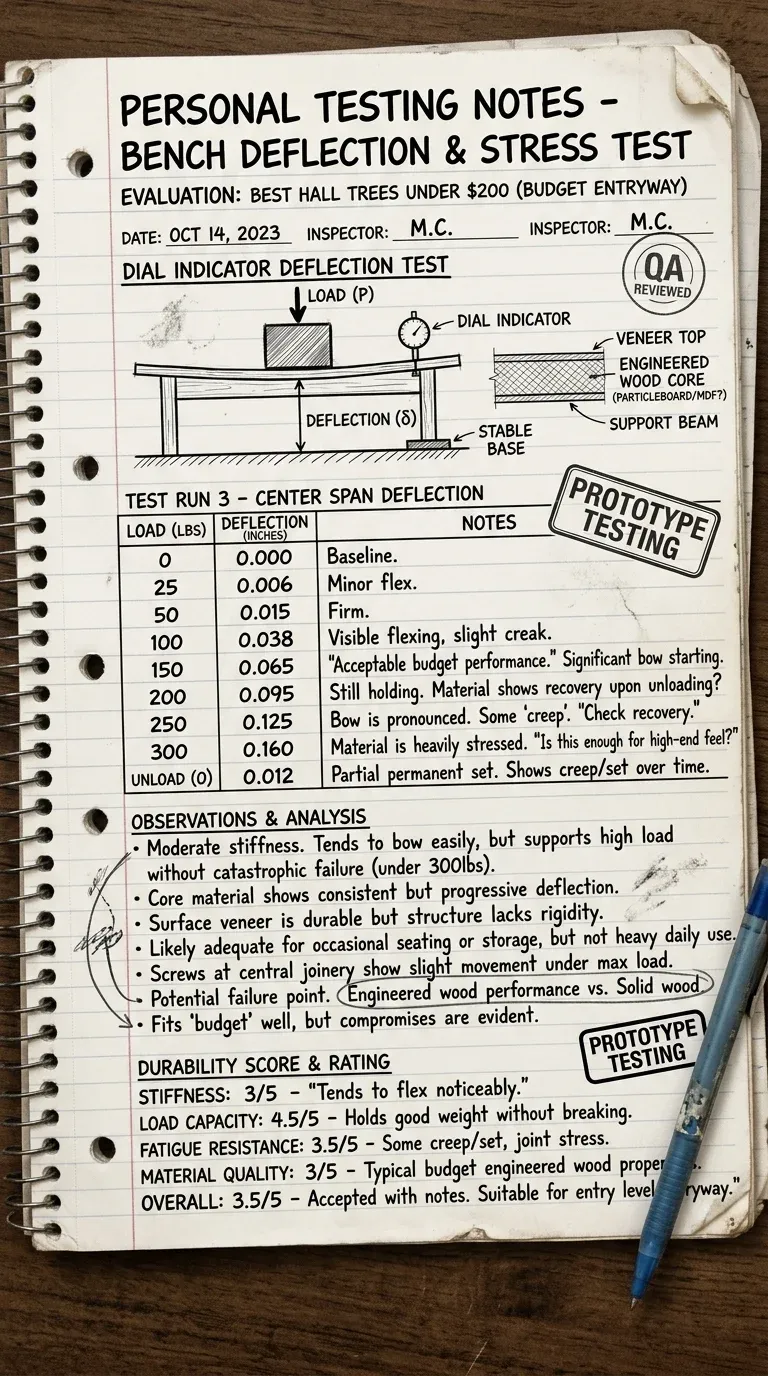 PERSONAL TESTING NOTES –
BENCH DEFLECTION & STRESS TEST
EVALUATION: BEST HALL TREES UNDER $200 (BUDGET ENTRYWAY)
DATE: OCT 14, 2023 INSPECTOR: M.C. INSPECTOR: M.C.
QA
REVIEWED
DIAL INDICATOR DEFLECTION TEST
LOAD (P)
DIAL INDICATOR
VENEER TOP
ENGINEERED
WOOD CORE
(PARTICLEBOARD/MDF?)
DEFLECTION (δ)
SUPPORT BEAM
STABLE
BASE
TEST RUN 3 – CENTER SPAN DEFLECTION
PROTOTYPE
TESTING
LOAD (LBS) DEFLECTION (INCHES) NOTES
0 0.000 Baseline.
25 0.006 Minor flex.
50 0.015 Firm.
100 0.038 Visible flexing, slight creak.
150 0.065 "Acceptable budget performance." Significant bow starting.
200 0.095 Still holding. Material shows recovery upon unloading?
250 0.125 Bow is pronounced. Some 'creep'. "Check recovery."
300 0.160 Material is heavily stressed. "Is this enough for high-end feel?"
UNLOAD (0) 0.012 Partial permanent set. Shows creep/set over time.
OBSERVATIONS & ANALYSIS
• Moderate stiffness. Tends to bow easily, but supports high load
without catastrophic failure (under 300lbs).
• Core material shows consistent but progressive deflection.
• Surface veneer is durable but structure lacks rigidity.
• Likely adequate for occasional seating or storage, but not heavy daily use.
• Screws at central joinery show slight movement under max load.
• Potential failure point. Engineered wood performance vs. Solid wood.
• Fits 'budget' well, but compromises are evident.
PROTOTYPE
TESTING
DURABILITY SCORE & RATING
STIFFNESS: 3/5 – "Tends to flex noticeably."
LOAD CAPACITY: 4.5/5 – Holds good weight without breaking.
FATIGUE RESISTANCE: 3.5/5 – Some creep/set, joint stress.
MATERIAL QUALITY: 3/5 – Typical budget engineered wood
OVERALL: 3.5/5 – Accepted with notes. Suitable for entry level